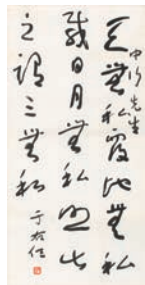 先生
天無私覆地無私
載日月無私照此
之謂三無私
于右任